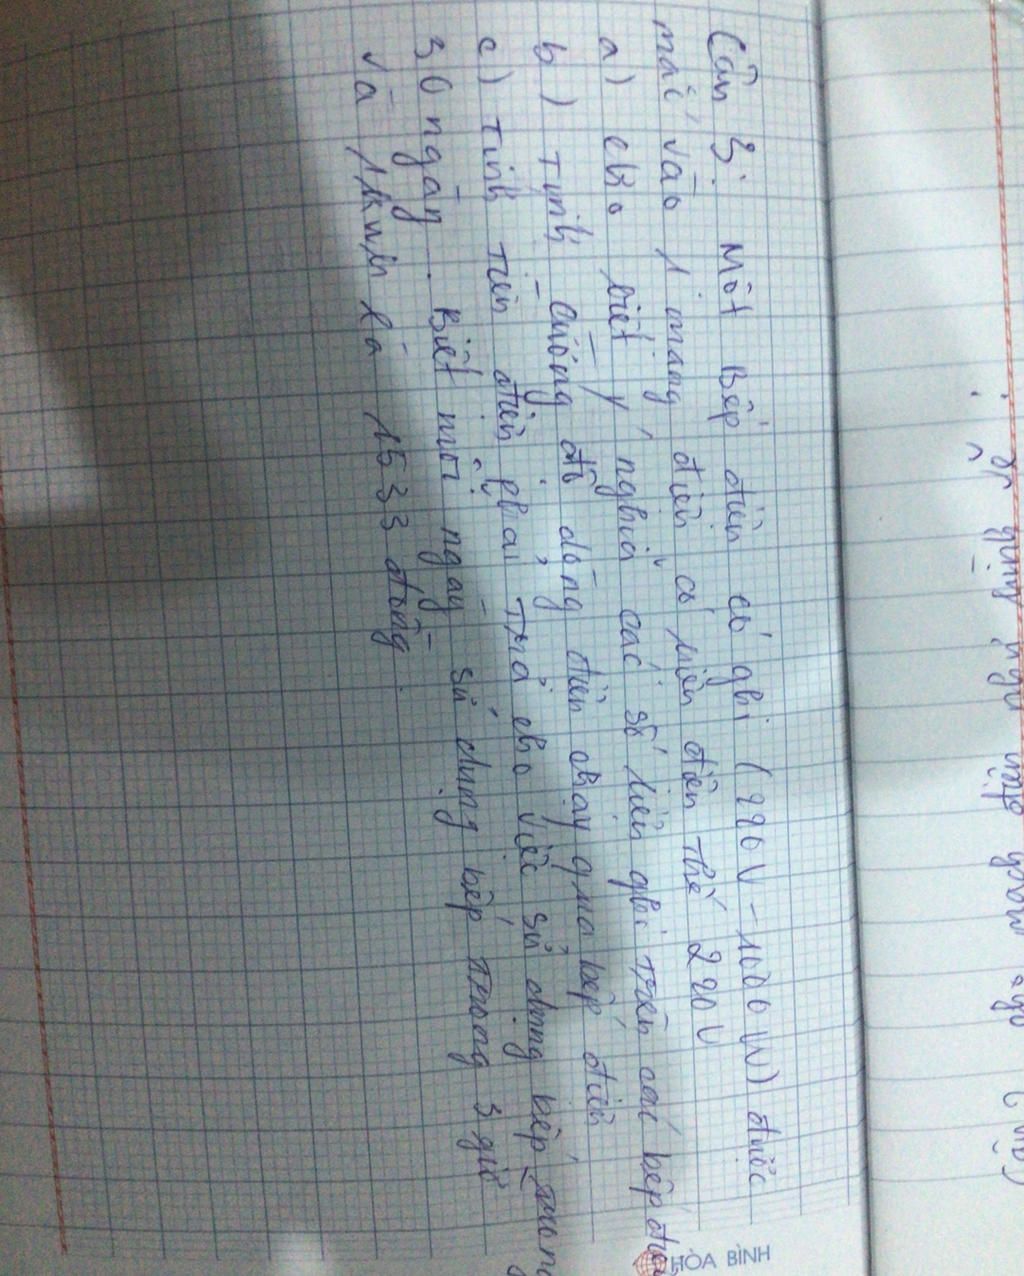 Câu 3: Một Bếp điện có ghi (220V - 1000W) được
mắc vào 1 mạng điện có hiệu điện thế 220V
a) cho biết ý nghĩa các số liệu ghi trên các bếp điện
b) Tính cường độ dòng điện chạy qua bếp điện
c) Tính tiền điện phải trả cho việc sử dụng bếp trong
30 ngày. Biết mỗi ngày sử dụng bếp trong 3 giờ
và 1kWh là 1533 đồng.
HÒA BÌNH